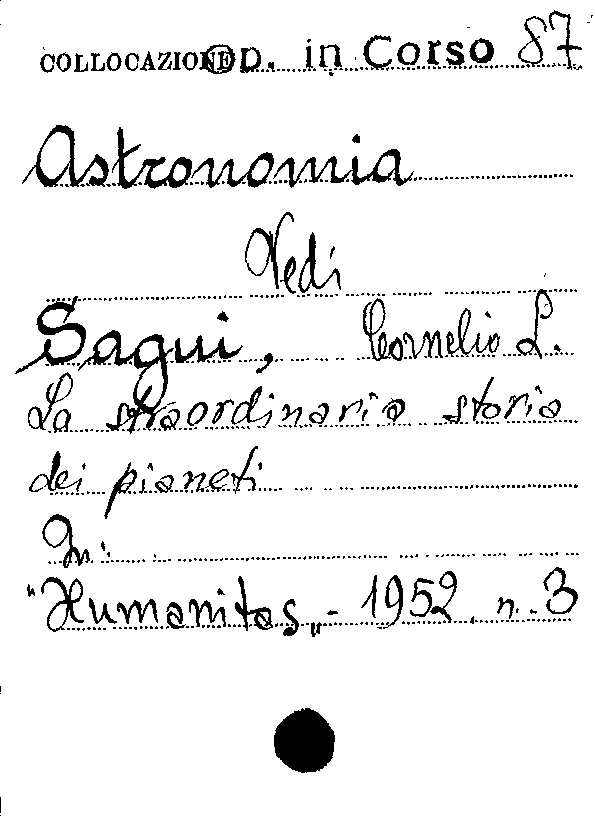 COLLOCAZIONE D. in Corso 87
Astronomia
Vedi
Sagui, Cornelio L.
La straordinaria storia
dei pianeti
In:
"Humanitas„ - 1952 n. 3